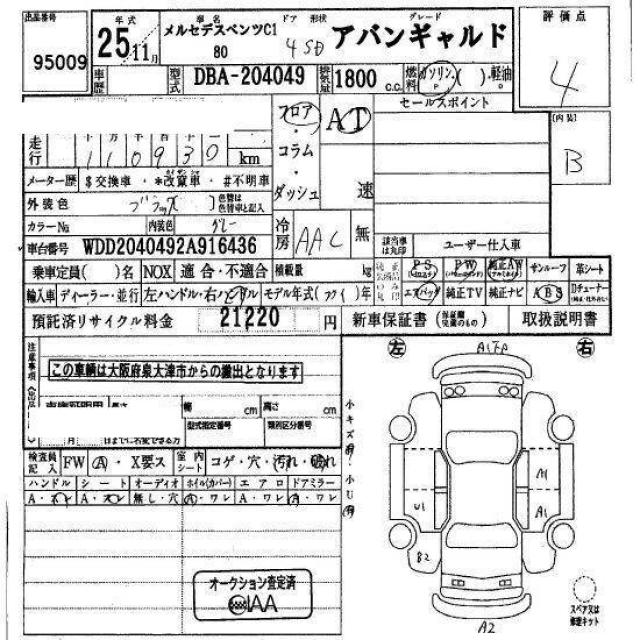 出品番号
95009
年式
25 11月
車名
メルセデスベンツC1
80
ドア 形状
4 SD
グレード
アバンギャルド
評価点
4
車歴
型式
DBA-204049
排気量
1800 c.c.
燃料
ガソリン ( )・軽油
セールスポイント
[内装]
B
走行
十 万 千 百 十 一
1 1 0 9 3 0 km
フロア・コラム・ダッシュ
AT
速
メーター歴 $交換車・*改竄車・#不明車
外装色 ブラック
色替は色替車と記入
カラーNo. 内装色 グレー
冷房
AAC
無
該当車は丸印
ユーザー仕入車
車台番号 WDD2040492A916436
乗車定員( )名 NOX 適合・不適合
積載量 kg
純正品公認のみ丸印
PS PW 純正AW サンルーフ 革シート
輸入車 ディーラー・並行 左ハンドル・右ハンドル モデル年式( )年
エアバッグ 純正TV 純正ナビ ABS Dチューナー
預託済リサイクル料金 21220 円
新車保証書 取扱説明書
注意事項
この車輌は大阪府泉大津市からの搬出となります
長さ 幅 cm 高さ cm
型式指定番号 類別区分番号
左
右
A1
A1
A1
U1
B2
A2
小キズ有 小U有
検査員記入 FW A・X要ス 室内シート コゲ・穴・汚れ・破れ
ハンドル シート オーディオ ホイル(カバー) エアロ ドアミラー
A・スレ A・スレ 無し・穴 A・ワレ A・ワレ A・ワレ
オークション査定済
IAA
スペアスは修理キット